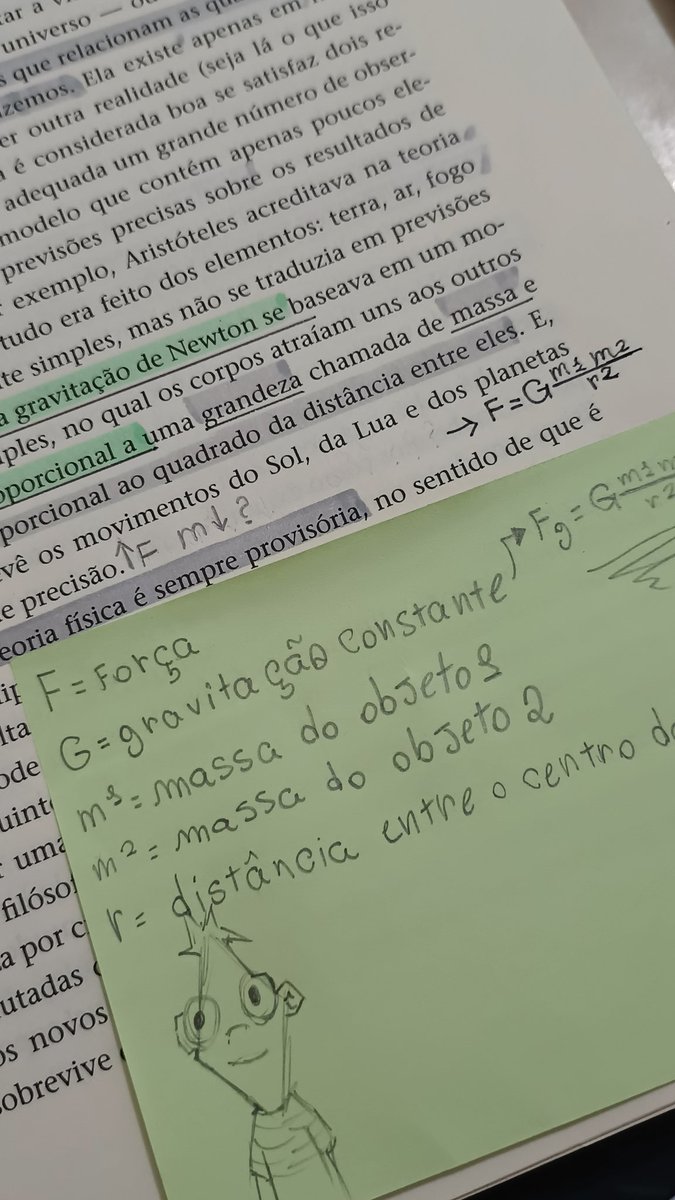 universo —
que relacionam as
Ela existe apenas em
outra realidade (seja lá o que isso
é considerada boa se satisfaz dois re-
adequada um grande número de obser-
modelo que contém apenas poucos ele-
previsões precisas sobre os resultados de
exemplo, Aristóteles acreditava na teoria
tudo era feito dos elementos: terra, ar, fogo
simples, mas não se traduzia em previsões
gravitação de Newton se baseava em um mo-
no qual os corpos atraíam uns aos outros
a uma grandeza chamada de massa e
ao quadrado da distância entre eles. E,
os movimentos do Sol, da Lua e dos planetas
→ F=G m1 m2 / r2
de precisão. ↑F m↓?
física é sempre provisória, no sentido de que é
F = Força
G = gravitação constante ↗ Fg = G
m1 = massa do objeto 1
m2 = massa do objeto 2
r = distância entre o centro
uma
a por
os novos
sobrevive